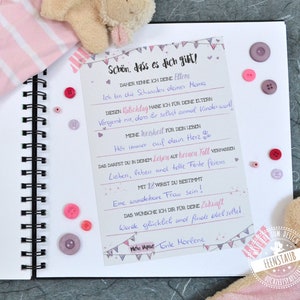 Schön, dass es dich gibt!
DAHER KENNE ICH DEINE Eltern
Ich bin die Schwester deiner Mama
DIESEN Ratschlag HABE ICH FÜR DEINE ELTERN
Vergesst nie, dass ihr selbst einmal Kinder wart
MEINE Weisheit FÜR DEIN LEBEN
Hör immer auf dein Herz
DAS DARFST DU IN DEINEM LEBEN AUF keinen Fall VERPASSEN
Lieben, leben und tolle Feste feiern
MIT 18 WIRST DU BESTIMMT
Eine wunderbare Frau sein!
DAS WÜNSCHE ICH DIR FÜR DEINE Zukunft
Werde glücklich und finde dich selbst
Mein Name: Tante Marlene
FEENSTAUB